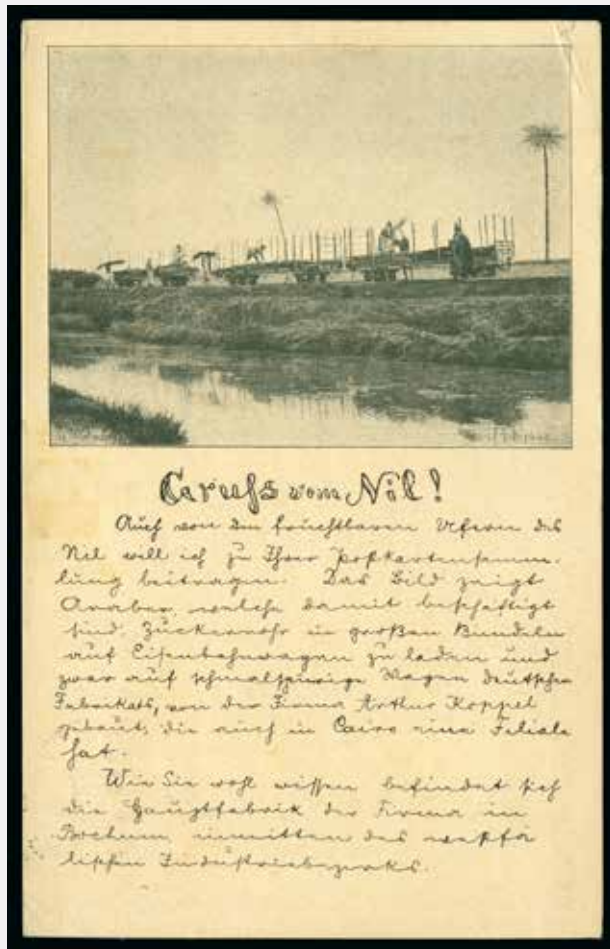 Gruss vom Nil!
Auch von den fruchtbaren Ufern des
Nil will ich zu Ihrer Postkartensamm-
lung beitragen. Das Bild zeigt
Araber, welche damit beschäftigt
sind, Zuckerrohr in großen Bundeln
auf Eisenbahnwagen zu laden und
zwar auf schmalspurige Wagen deutschen
Fabrikats, von der Firma Arthur Koppel
gebaut, die auch in Cairo eine Filiale
hat.
Wie Sie wohl wissen befindet sich
die Hauptfabrik der Firma in
Bochum inmitten des westfä
lischen Industriebezirks.